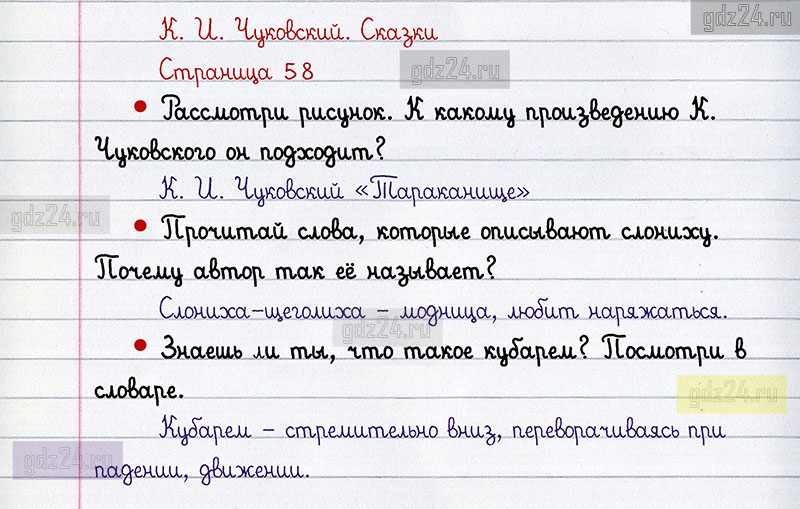 gdz24.ru
К. И. Чуковский. Сказки
Страница 58
gdz24.ru
• Рассмотри рисунок. К какому произведению К.
Чуковского он подходит?
К. И. Чуковский «Тараканище»
gdz24.ru
• Прочитай слова, которые описывают слониху.
Почему автор так её называет?
Слониха-щеголиха – модница, любит наряжаться.
gdz24.ru
• Знаешь ли ты, что такое кубарем? Посмотри в
словаре.
gdz24.ru
Кубарем – стремительно вниз, переворачиваясь при
падении, движении.
gdz24.ru